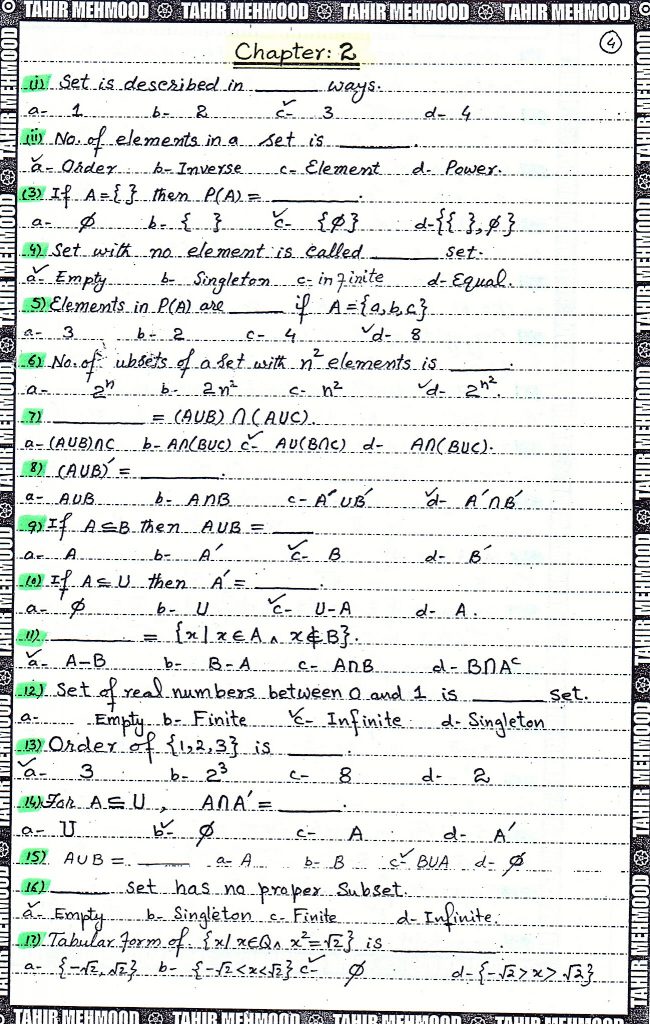 TAHIR MEHMOOD TAHIR MEHMOOD TAHIR MEHMOOD TAHIR MEHMOOD
4
Chapter: 2
(i) Set is described in ______ ways.
a- 1 b- 2 ✓c- 3 d- 4
(ii) No. of elements in a set is ______.
✓a- Order b- Inverse c- Element d- Power.
(3) If A={ } then P(A) = ______.
a- ∅ b- { } ✓c- {∅} d-{{ },∅}
4) Set with no element is called ______ set.
✓a- Empty b- Singleton c- infinite d- Equal.
5) Elements in P(A) are ______ if A={a,b,c}
a- 3 b- 2 c- 4 ✓d- 8
6) No. of ubsets of a set with n² elements is ______.
a- 2ⁿ b- 2n² c- n² ✓d- 2^n².
7) ______ = (AUB) ∩ (AUC).
a- (AUB)∩C b- A∩(BUC) ✓c- AU(B∩C) d- A∩(BUC).
8) (AUB)′ = ______.
a- AUB b- A∩B c- A′UB′ ✓d- A′∩B′
9) If A⊆B then AUB = ______
a- A b- A′ ✓c- B d- B′
10) If A⊆U then A′ = ______.
a- ∅ b- U ✓c- U-A d- A.
11) ______ = {x | x∈A ∧ x∉B}.
✓a- A-B b- B-A c- A∩B d- B∩Aᶜ
12) Set of real numbers between 0 and 1 is ______ set.
a- Empty b- Finite ✓c- Infinite d- Singleton
13) Order of {1,2,3} is ______.
✓a- 3 b- 2³ c- 8 d- 2
14) For A⊆U, A∩A′ = ______.
a- U ✓b- ∅ c- A d- A′
15) AUB = ______ a- A b- B ✓c- BUA d- ∅
16) ______ set has no proper Subset.
✓a- Empty b- Singleton c- Finite d- Infinite.
17) Tabular form of {x/x∈Q∧ x²=√2} is ______.
a- {-√2, √2} b- {-√2<x<√2} ✓c- ∅ d-{-√2>x>√2}
TAHIR MEHMOOD TAHIR MEHMOOD TAHIR MEHMOOD TAHIR MEHMOOD